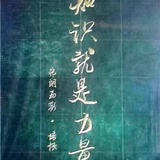 知识就是力量
弗朗西斯·培根